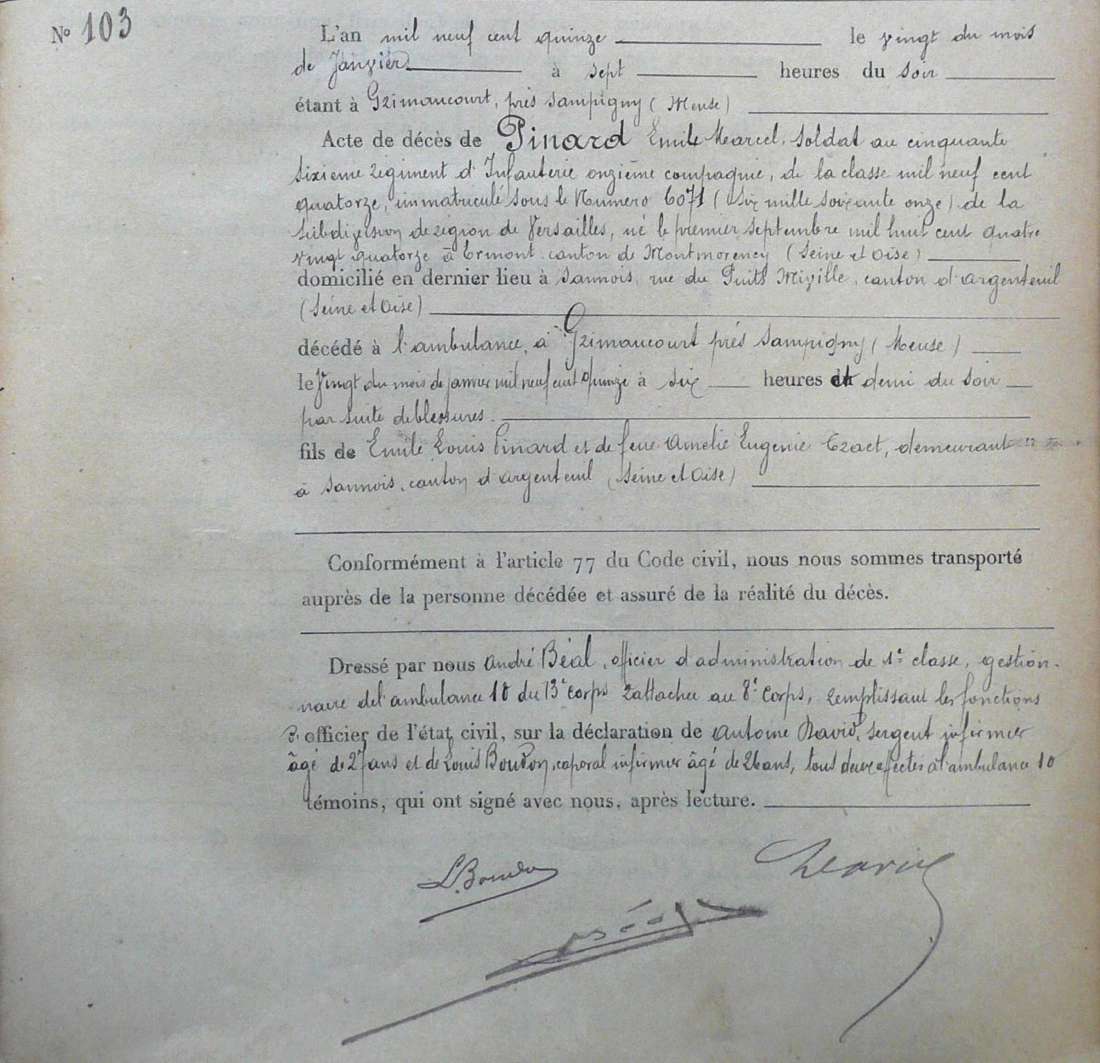 N° 103
L'an mil neuf cent quinze le vingt du mois
de Janvier à sept heures du soir
étant à Grimaucourt, près Sampigny (Meuse)
Acte de décès de Pinard Emile Marcel, soldat au cinquante
sixième régiment d'Infanterie onzième compagnie, de la classe mil neuf cent
quatorze, immatriculé sous le Numéro 6071 (six mille soixante onze) de la
subdivision de région de Versailles, né le premier septembre mil huit cent quatre
vingt quatorze à Ermont canton de Montmorency (Seine et Oise)
domicilié en dernier lieu à Sannois, rue du Puits Miville, canton d'argenteuil
(Seine et Oise)
décédé à l'ambulance, à Grimaucourt près Sampigny (Meuse)
le Vingt du mois de janvier mil neuf cent Quinze à six heures et demi du soir
par suite de blessures.
fils de Emile Louis Pinard et de feue Amélie Eugenie, demeurant
à Sannois, canton d'argenteuil (Seine et Oise)
Conformément à l'article 77 du Code civil, nous nous sommes transporté
auprès de la personne décédée et assuré de la réalité du décès.
Dressé par nous André Béal, officier d'administration de 1e classe, gestion-
naire de l'ambulance 10 du 13e corps rattachée au 8e Corps, remplissant les fonctions
d'officier de l'état civil, sur la déclaration de Antoine, sergent infirmier
âgé de 27 ans et de Louis Boudon, caporal infirmier âgé de 26 ans, tous deux affectés à l'ambulance 10
témoins, qui ont signé avec nous, après lecture.
L. Boudon
Béal